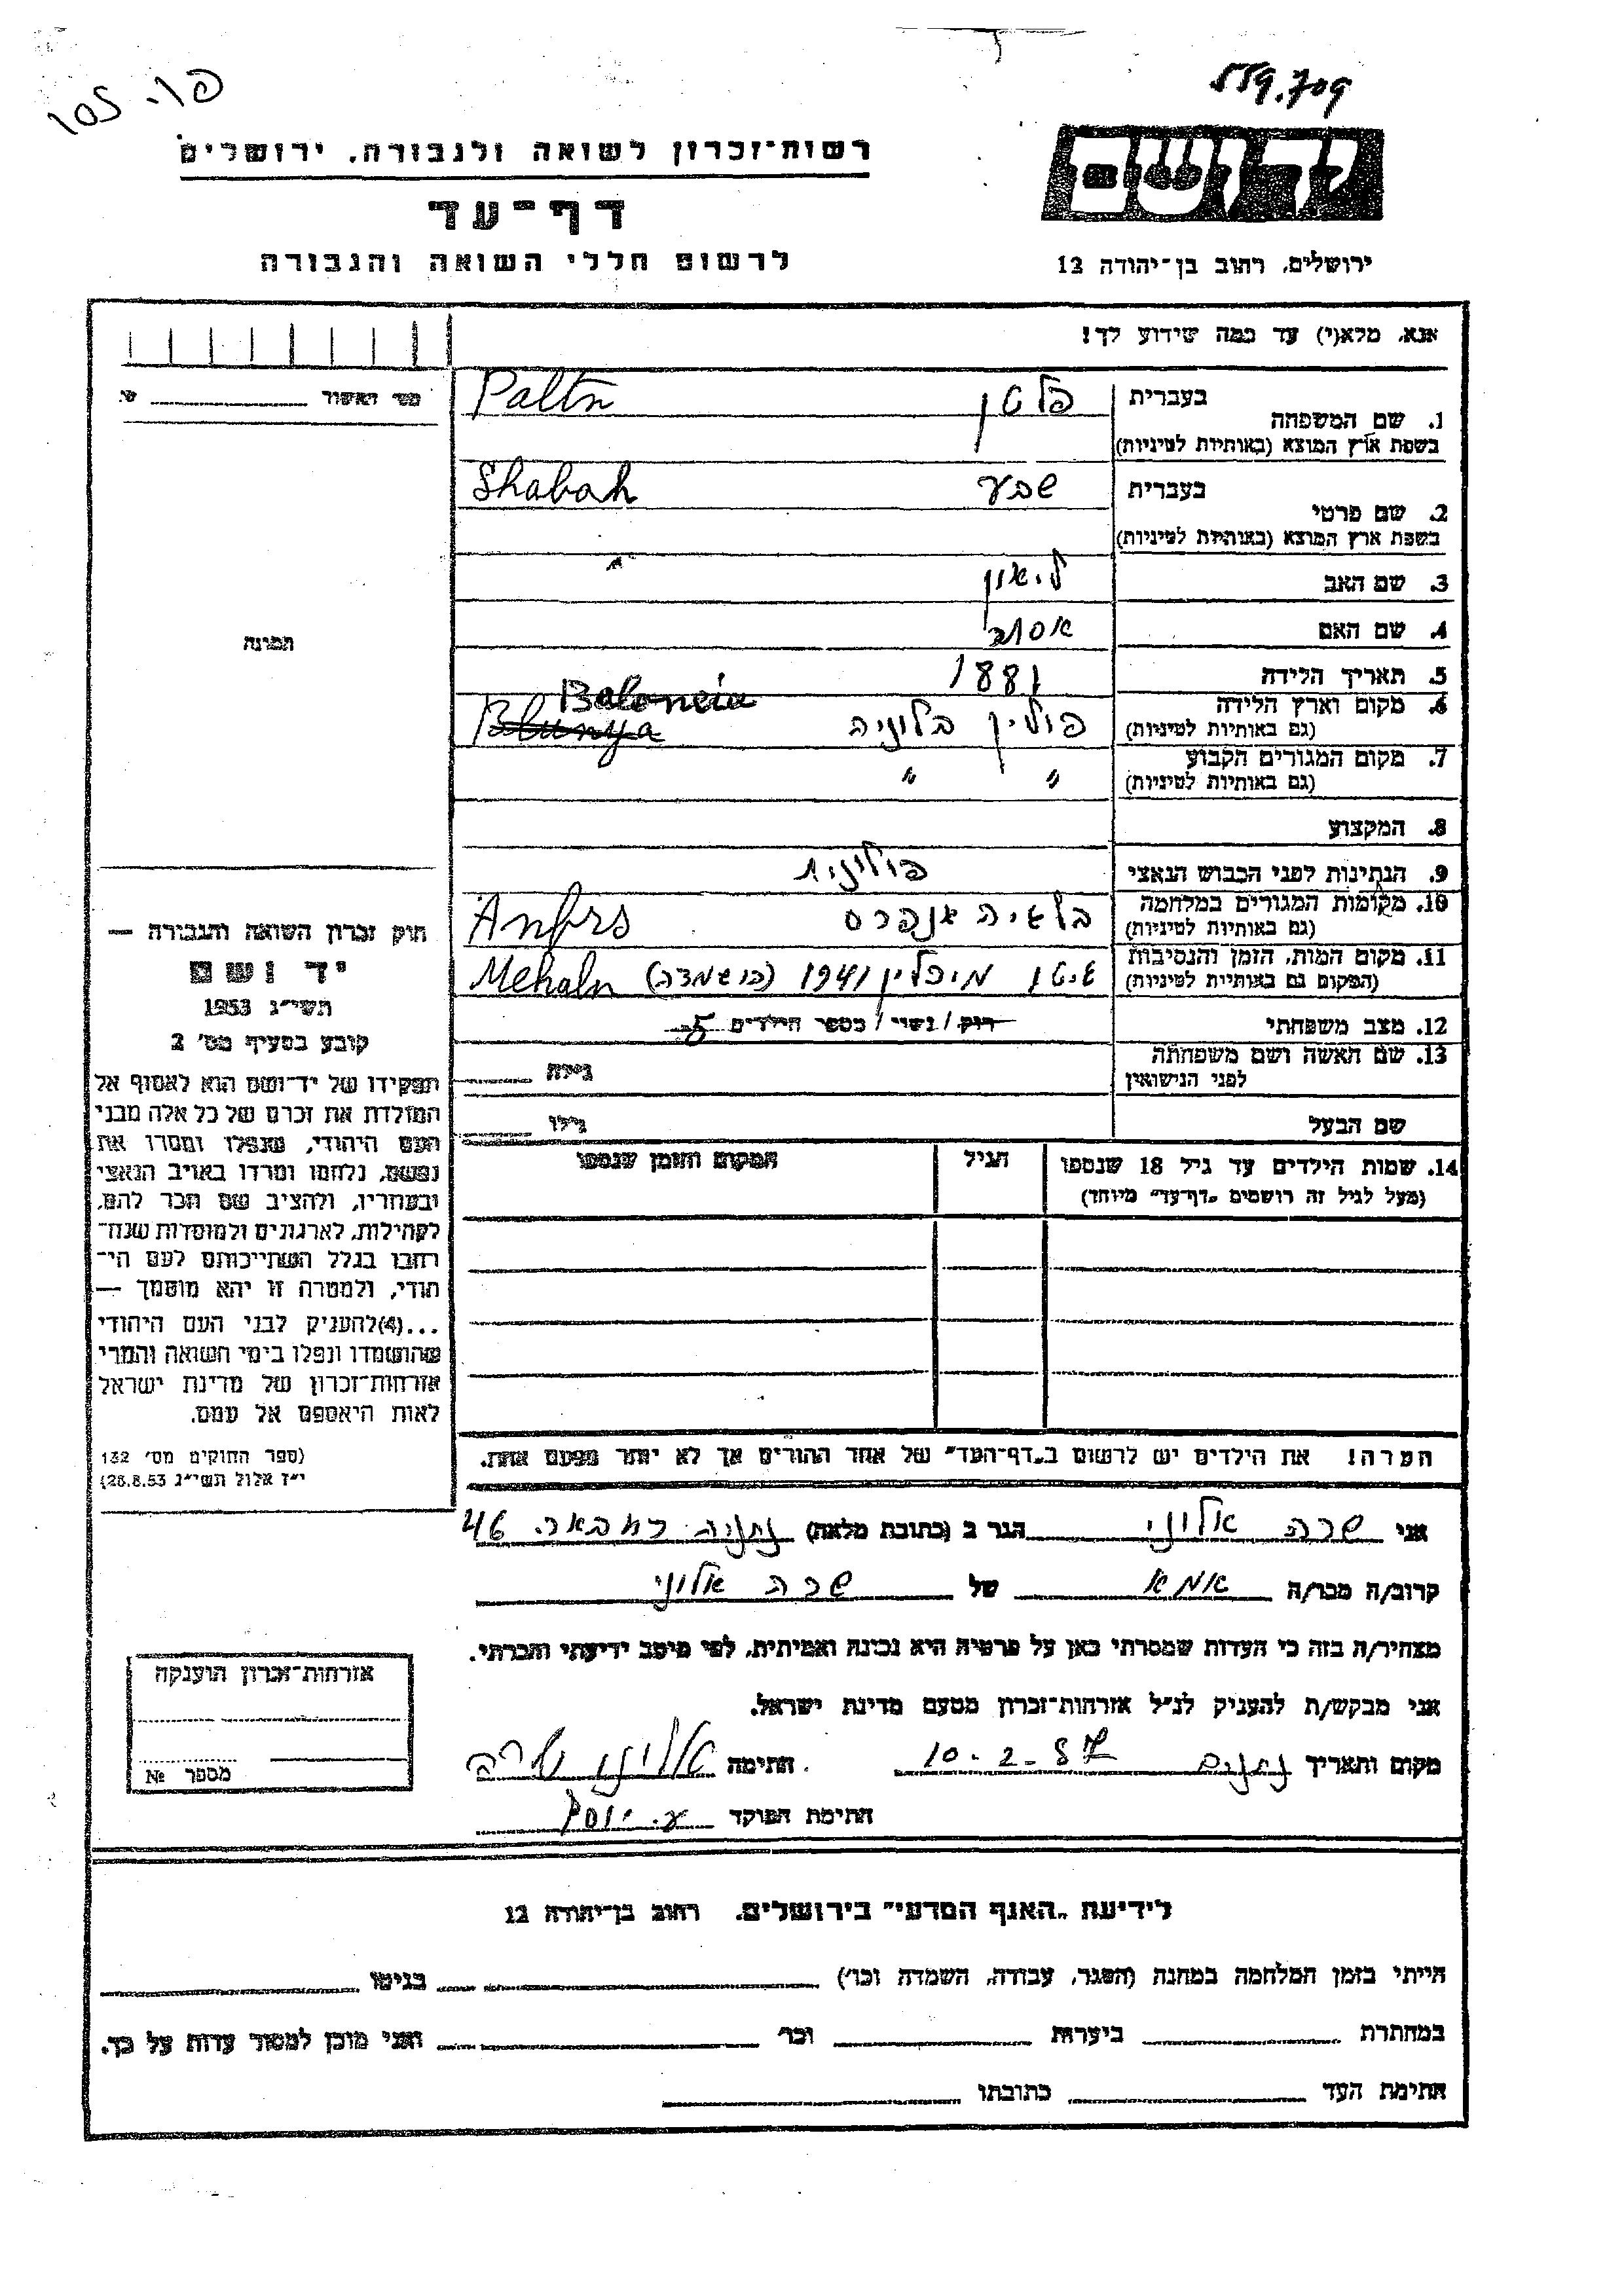 פו. 105
559.709
רשות־זכרון לשואה ולגבורה, ירושלים
יד ושם
דף־עד
לרשום חללי השואה והגבורה
ירושלים, רחוב בן־יהודה 12
אנא, מלא(י) עד כמה שידוע לך!
מס' האשור
1. שם המשפחה בעברית פלטן Paltn
בשפת ארץ המוצא (באותיות לטיניות)
2. שם פרטי בעברית שבע Shabah
בשפת ארץ המוצא (באותיות לטיניות)
3. שם האב ליאון
4. שם האם אסתר
תמונה
5. תאריך הלידה 1881
Baloneia
6. מקום וארץ הלידה פולין בלוניה Blunya
(גם באותיות לטיניות)
7. מקום המגורים הקבוע " "
(גם באותיות לטיניות)
8. המקצוע
9. הנתינות לפני הכבוש הנאצי פולינית
10. מקומות המגורים במלחמה בלגיה אנפרס Anfrs
(גם באותיות לטיניות)
11. מקום המות, הזמן והנסיבות מיכלין 1941 (בושמדה) Mehaln
(המקום גם באותיות לטיניות)
12. מצב משפחתי רוק/נשוי/מספר הילדים 5
13. שם האשה ושם משפחתה גילה
לפני הנישואין
שם הבעל גילו
14. שמות הילדים עד גיל 18 שנספו הגיל המקום והזמן שנספו
(מעל לגיל זה רושמים "דף־עד" מיוחד)
חוק זכרון השואה והגבורה —
יד ושם
תשי"ג 1953
קובע בסעיף מס' 2
תפקידו של יד־ושם הוא לאסוף אל
המולדת את זכרם של כל אלה מבני
העם היהודי, שנפלו ומסרו את
נפשם, נלחמו ומרדו באויב הנאצי
ובעוזריו, ולהציב שם וזכר להם,
לקהילות, לארגונים ולמוסדות שנח־
רבו בגלל השתייכותם לעם הי־
הודי, ולמטרה זו יהא מוסמך —
...(4)להעניק לבני העם היהודי
שהושמדו ונפלו בימי השואה והמרי
אזרחות־זכרון של מדינת ישראל
לאות היאספם אל עמם.
(ספר החוקים מס' 132
י"ז אלול תשי"ג 28.8.53)
הערה! את הילדים יש לרשום ב"דף־העד" של אחד ההורים אך לא יותר מפעם אחת.
אני שרה אלוני הגר ב (כתובת מלאה) נתניה 46
קרוב/ה מכר/ה אמא של שרה אלוני
מצהיר/ה בזה כי העדות שמסרתי כאן על פרטיה היא נכונה ואמיתית, לפי מיטב ידיעתי והכרתי.
אני מבקש/ת להעניק לנ"ל אזרחות־זכרון מטעם מדינת ישראל.
מקום ותאריך 10-2-87 חתימה אלוני שרה
חתימת הפוקד ע. יוסף
אזרחות־זכרון הוענקה
מספר №
לידיעת "האגף המדעי" בירושלים, רחוב בן־יהודה 12
הייתי בזמן המלחמה במחנה (הסגר, עבודה, השמדה וכו') בגיטו
במחתרת ביערות וכו' ואני מוכן למסור עדות על כך.
חתימת העד כתובתו